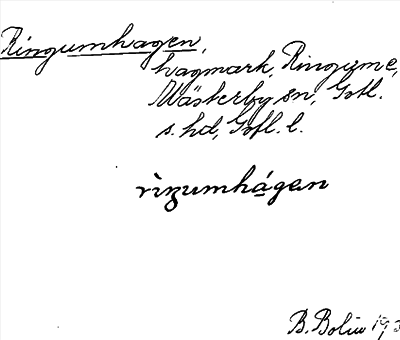 Ringumhagen,
hagmark, Ringume,
Västerby sn, Gotl.
s. hd, Gotl. l.
rizumhágan
B. Bolin 193